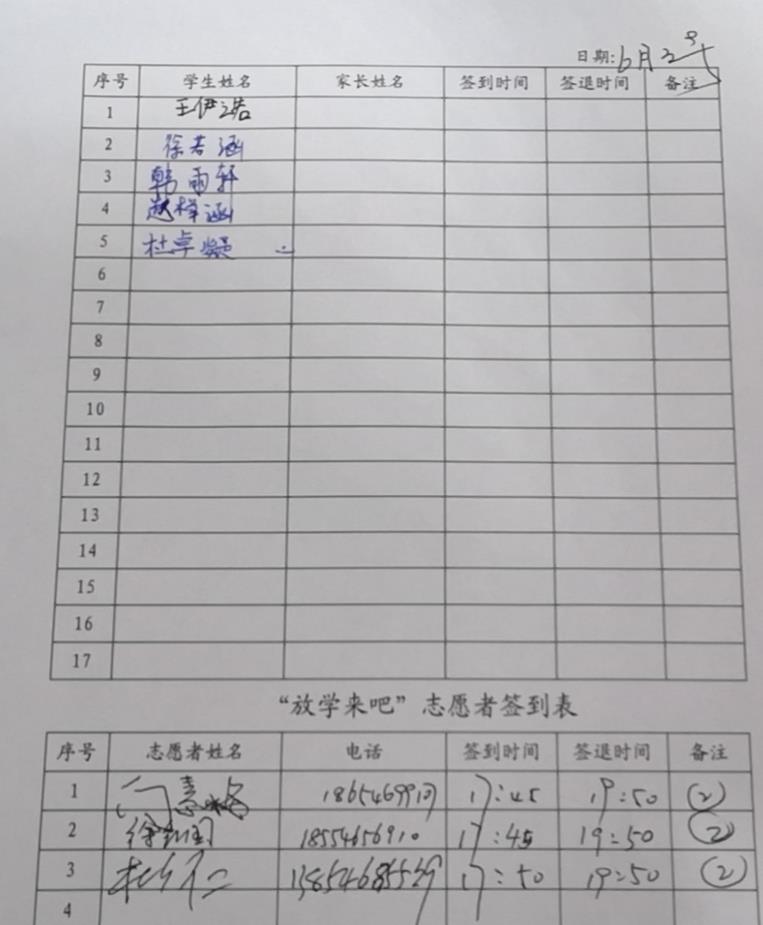 日期:6月2
序号 学生姓名 家长姓名 签到时间 签退时间 备注
1 王伊诺
2 徐若涵
3 韩雨轩
4 赵梓涵
5 杜卓
6
7
8
9
10
11
12
13
14
15
16
17
“放学来吧”志愿者签到表
序号 志愿者姓名 电话 签到时间 签退时间 备注
1 17:45 19:50 (2)
2 18554656910 17:45 19:50 (2)
3 17:50 19:50 (2)
4